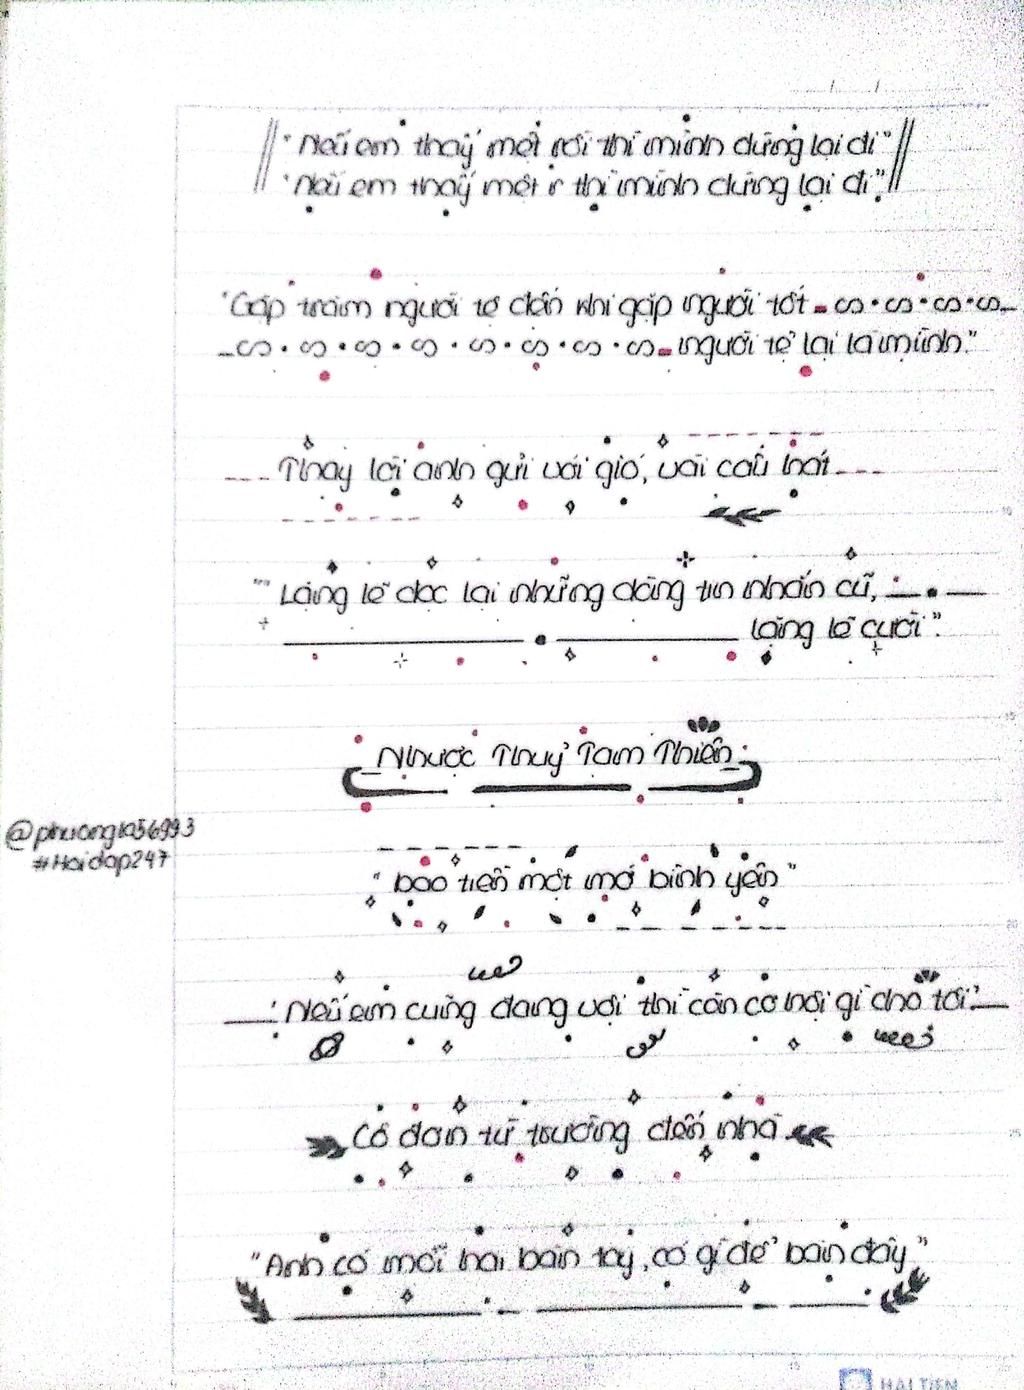 "Nếu em thấy mệt rồi thì mình dừng lại đi"
"Nếu em thấy mệt r thì mình dừng lại đi".
"Gặp trăm người tệ đến khi gặp người tốt
người tệ lại là mình."
Thay lời anh gửi với gió, vài câu hát
"" Lặng lẽ đọc lại những dòng tin nhắn cũ,
lặng lẽ cười".
Nhược Thuỷ Tam Thiên
@phuong1a56993
#Hoidap247
" bao tiền một mớ bình yên "
"Nếu em cũng đang vội thì cần cơ hội gì cho tôi"
Cô đơn từ trường đến nhà
"Anh có mỗi hai bàn tay, có gì để bán đây"
HẢI TIẾN